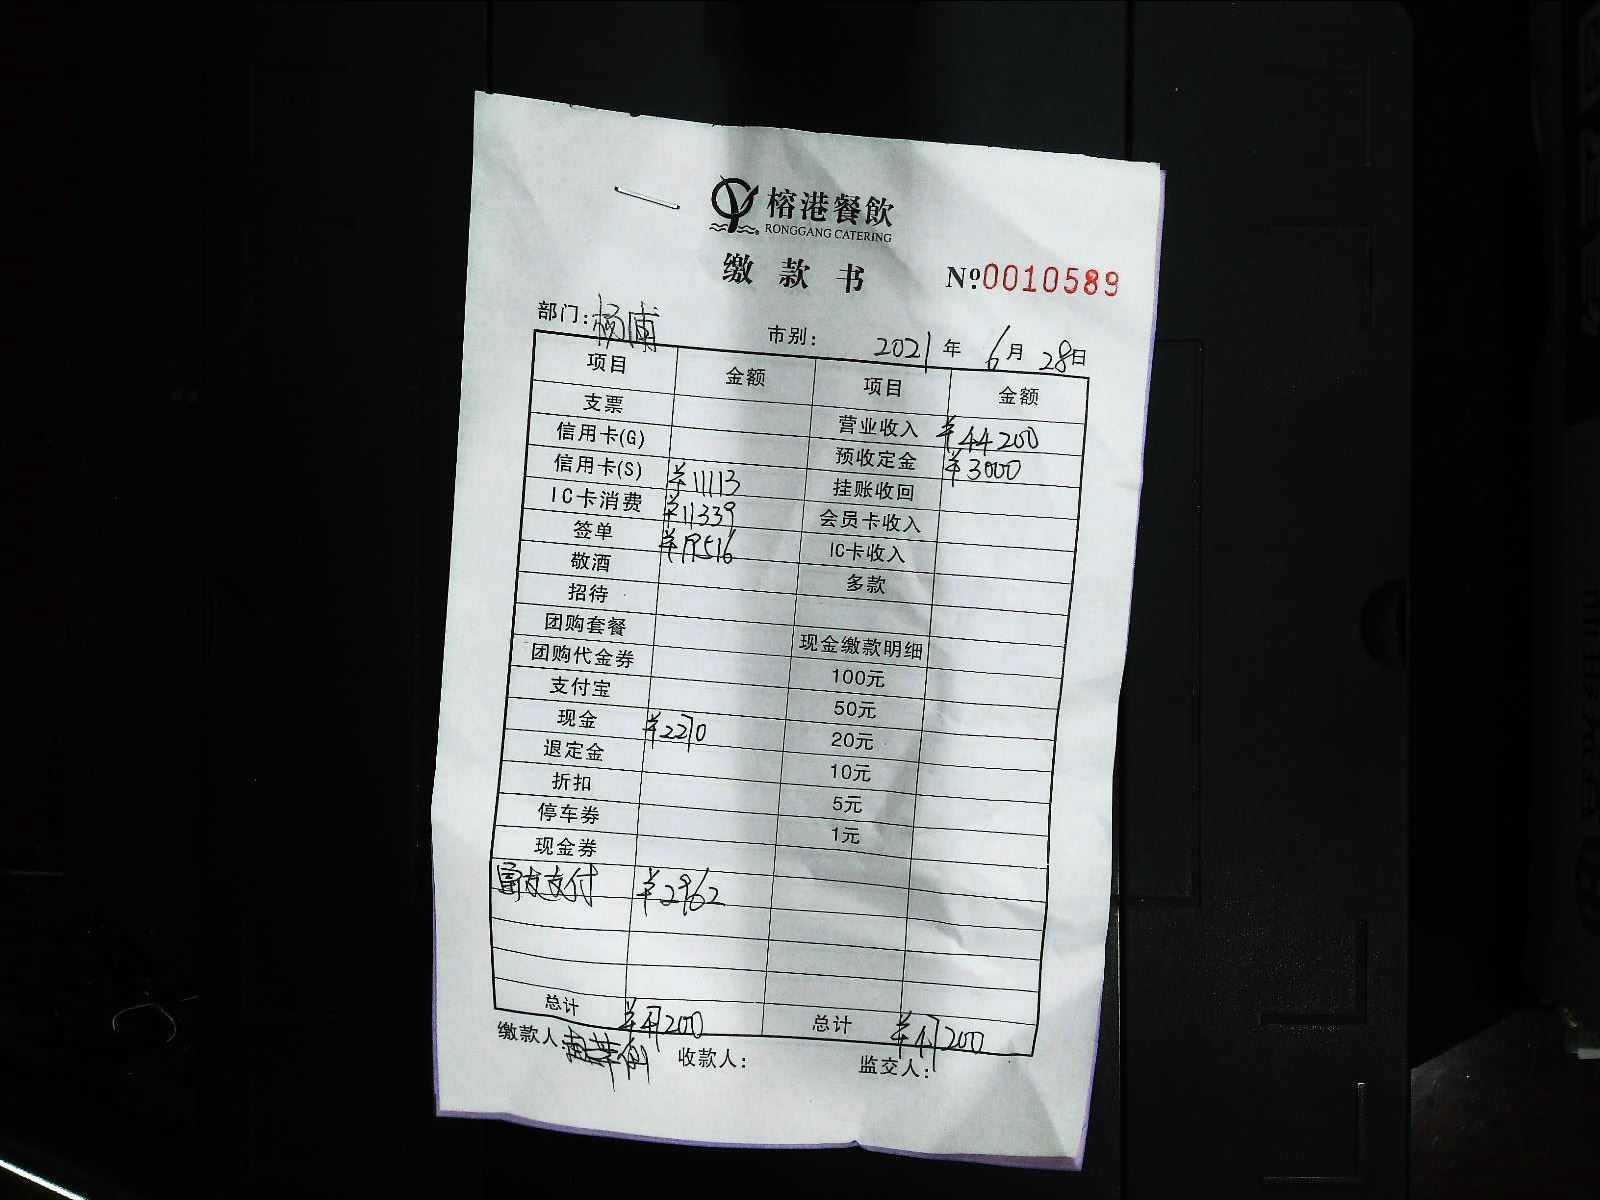 榕港餐飲
RONGGANG CATERING
缴款书 №0010589
部门:杨浦 市别: 2021年6月28日
项目 金额 项目 金额
支票 营业收入 ¥44200
信用卡(G) 预收定金 ¥3000
信用卡(S) ¥11113 挂账收回
IC卡消费 ¥11339 会员卡收入
签单 ¥19516 IC卡收入
敬酒 多款
招待
团购套餐 现金缴款明细
团购代金券 100元
支付宝 50元
现金 ¥2270 20元
退定金 10元
折扣 5元
停车券 1元
现金券
富友支付 ¥2962
总计 ¥47200 总计 ¥47200
缴款人: 收款人: 监交人: